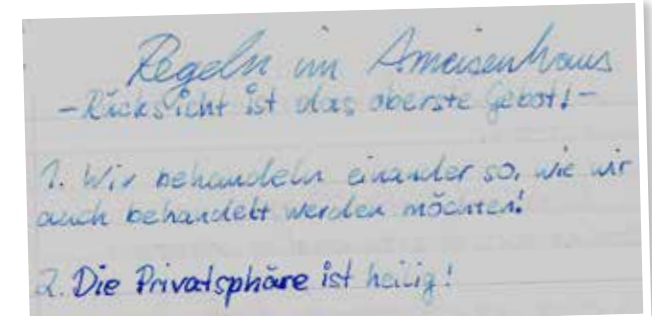 Regeln im Ameisenhaus
- Rücksicht ist das oberste Gebot! -
1. Wir behandeln einander so, wie wir
auch behandelt werden möchten!
2. Die Privatsphäre ist heilig!